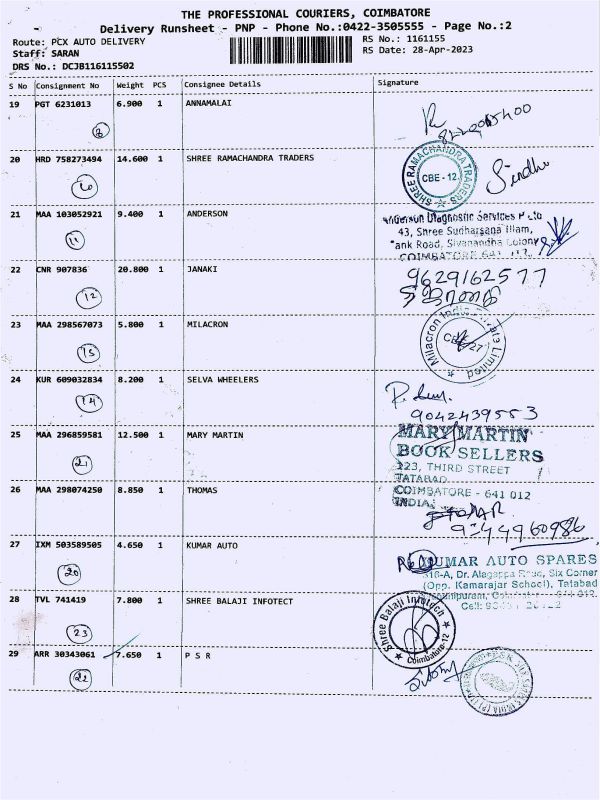 THE PROFESSIONAL COURIERS, COIMBATORE
Delivery Runsheet - PNP - Phone No.:0422-3505555 - Page No.:2
Route: PCX AUTO DELIVERY
RS No.: 1161155
Staff: SARAN
RS Date: 28-Apr-2023
DRS No.: DCJB116115502
S No Consignment No Weight PCS Consignee Details Signature
19 PGT 6231013 6.900 1 ANNAMALAI
8
20 HRD 758273494 14.600 1 SHREE RAMACHANDRA TRADERS
SHREE RAMACHANDRA TRADERS
CBE - 12
Sindhu
10
21 MAA 103052921 9.400 1 ANDERSON
Anderson Diagnostic Services P Ltd
43, Shree Sudharsana Illam,
Tank Road, Sivanandha Colony
COIMBATORE 641 012
11
22 CNR 907836 20.800 1 JANAKI
9629162577
ஜானகி
12
23 MAA 298567073 5.800 1 MILACRON
Milacron India Private Limited
CBE 27
15
24 KUR 609032834 8.200 1 SELVA WHEELERS
14
9042439553
25 MAA 296859581 12.500 1 MARY MARTIN
MARY MARTIN
BOOK SELLERS
223, THIRD STREET
TATABAD
COIMBATORE - 641 012
INDIA
21
26 MAA 298074250 8.850 1 THOMAS
9344960986
27 IXM 503589505 4.650 1 KUMAR AUTO
KUMAR AUTO SPARES
316-A, Dr. Alagappa Road, Six Corner
(Opp. Kamarajar School), Tatabad
Cell:
20
28 TVL 741419 7.800 1 SHREE BALAJI INFOTECT
Shree Balaji Infotech
Coimbatore-12
23
29 ARR 30343061 7.650 1 P S R
22